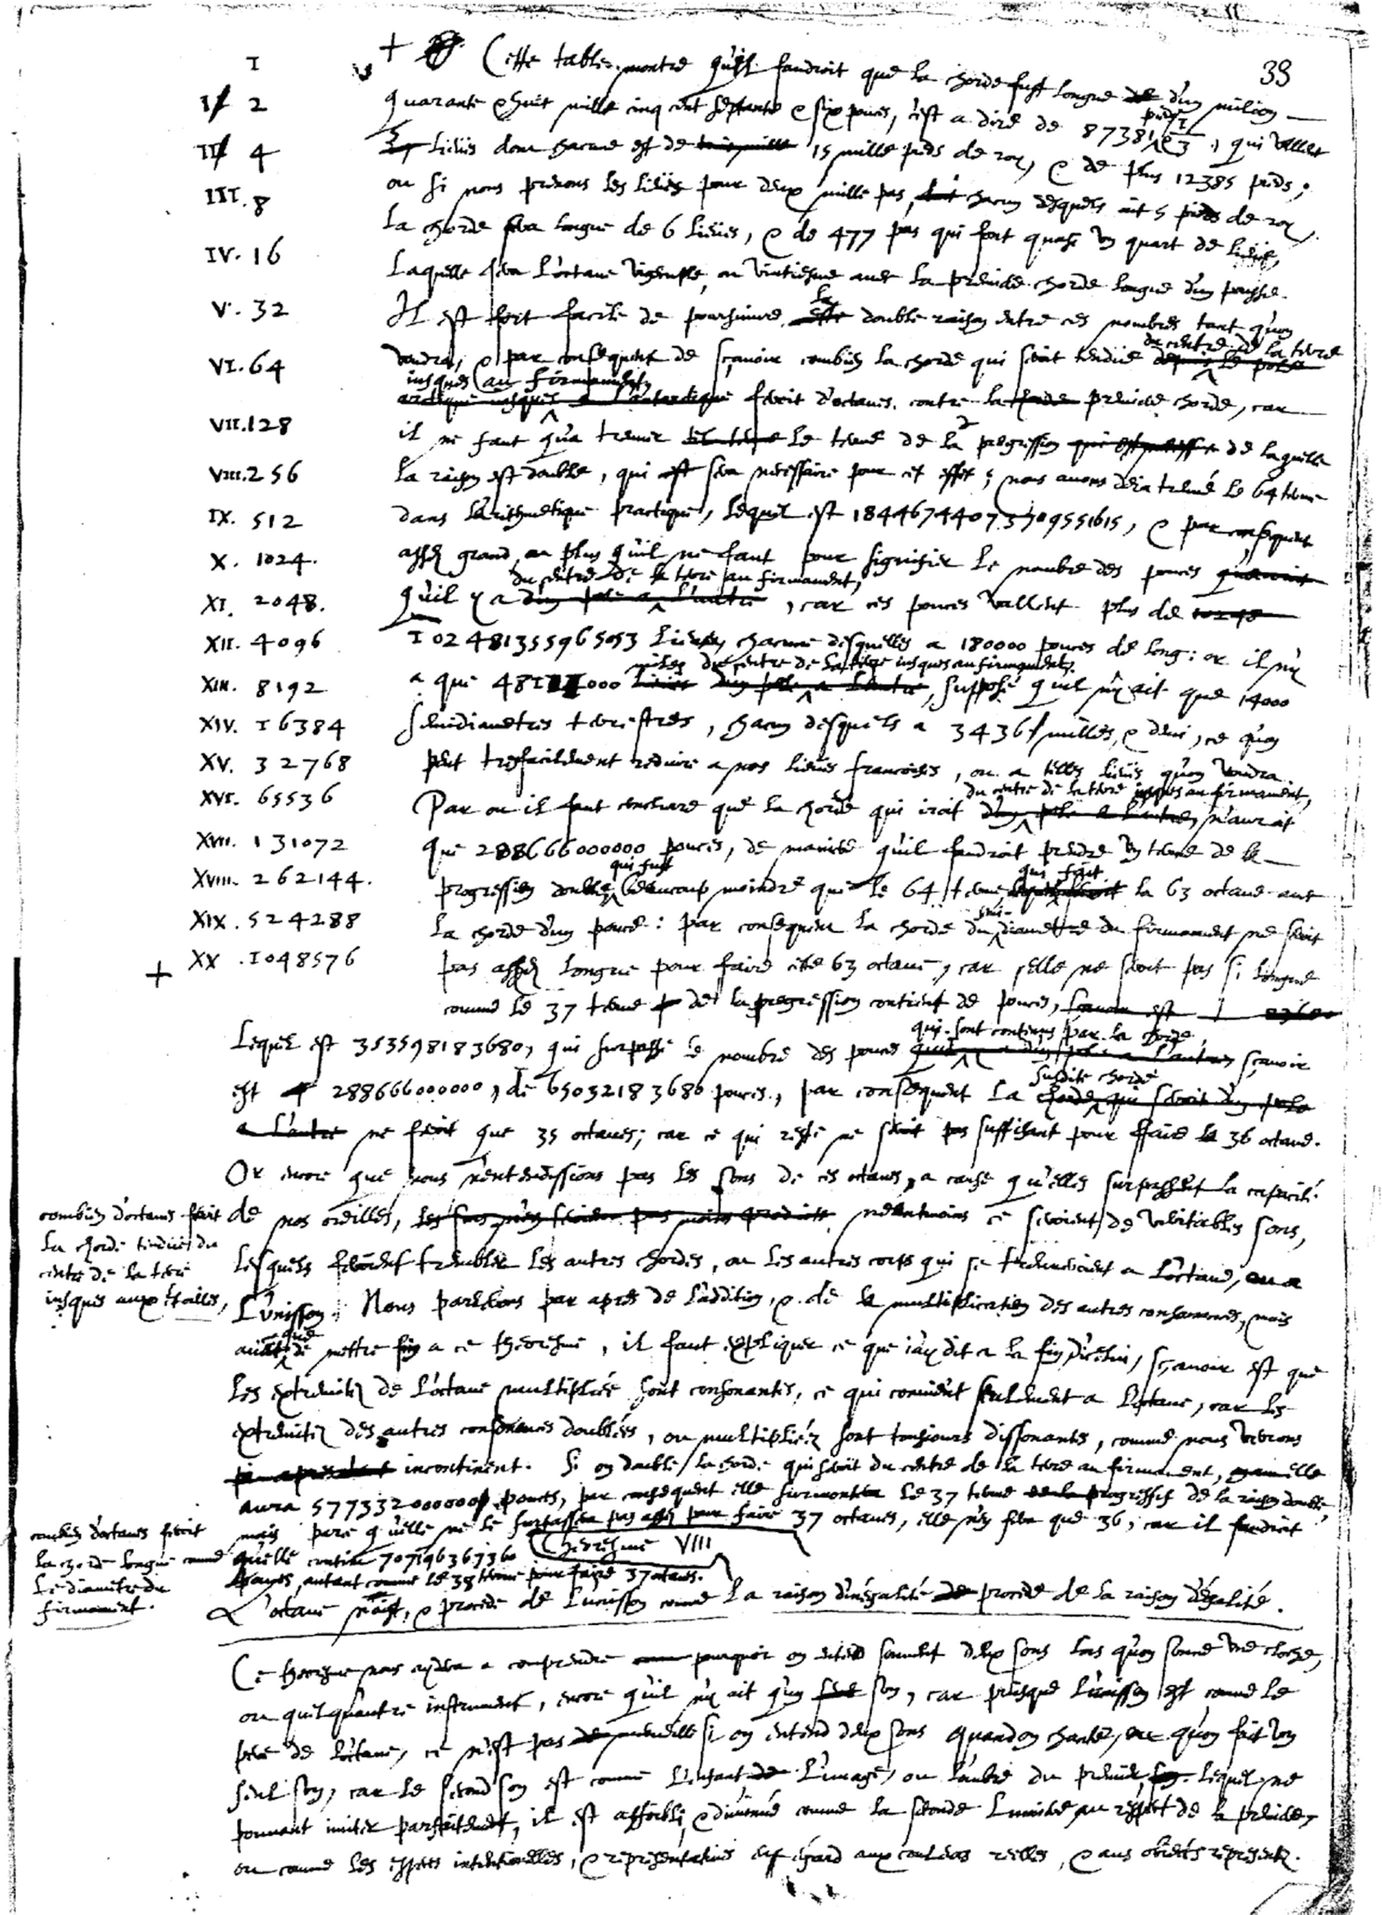 39
I
II 2
III 4
III. 8
IV. 16
V. 32
VI. 64
VII. 128
VIII. 256
IX. 512
X. 1024.
XI. 2048.
XII. 4096
XIII. 8192
XIV. 16384
XV. 32768
XVI. 65536
XVII. 131072
XVIII. 262144.
XIX. 524288
XX. 1048576
+ Cette table montre qu'il faudroit que la chorde fust longue d'un milion
quarante & huit mille cinq cent septante & six pouces, c'est a dire de 87381 pieds & 1/3, qui vallent
lieües dont chacune est de 15 mille pieds de roy, & de plus 12385 pieds;
ou si nous prenons les lieües pour deux mille pas, chacun desquels ait 5 pieds de roy,
la chorde sera longue de 6 lieües, & de 477 pas qui font quasi un quart de lieüe,
laquelle fera l'octave vigecuple, ou vintiesme avec la premiere chorde longue d'un pousse.
Il est fort facile de poursuivre la double raison entre ces nombres tant qu'on
voudra, & par consequent de sçavoir combien la chorde qui seroit tendüe du centre de la terre
iusques au firmament feroit d'octaves contre la premiere chorde, car
il ne faut qu'a treuver le terme de la progression de laquelle
la raison est double, qui sera necessaire pour cet effet; nous avons deia treuvé le 64 terme
dans l'Arithmetique practique, lequel est 18446744073709551615, & par consequent
assez grand, ou plus qu'il ne faut pour signifier le nombre des pouces
qu'il y a du centre de la terre au firmament, car ces pouces vallent plus de
102481355965053 lieües, chacune desquelles a 180000 pouces de long: or il n'y
a que 48111000 milles du centre de la terre iusques au firmament, supposé qu'il n'y ait que 14000
semidiametres terrestres, chacun desquels a 3436 milles, & demi, ce qu'on
peut tresfacilement reduire a nos lieües francoises, ou a telles lieües qu'on voudra.
Par ou il faut conclure que la chorde qui iroit du centre de la terre iusques au firmament, n'auroit
que 288666000000 pouces, de maniere qu'il faudroit prendre un terme de la
progression double qui fust beaucoup moindre que le 64 terme, qui fait la 63 octave avec
la chorde d'un pouce: par consequent la chorde du semidiametre du firmament ne seroit
pas assez longue pour faire cete 63 octave, car elle ne seroit pas si longue
comme le 37 terme de la progression contient de pouces,
lequel est 353598183680, qui surpasse le nombre des pouces qui sont contenus par la chorde, sçavoir
est 288666000000, de 65032183680 pouces, par consequent la susdite chorde
ne feroit que 35 octaves; car ce qui reste ne seroit pas suffisant pour faire la 36 octave.
Or encore que nous n'entendissions pas les sons de ces octaves, a cause qu'elles surpassent la capacité
de nos oreilles, neantmoins ce seroient de veritables sons,
lesquels feroient trembler les autres chordes, ou les autres corps qui se treuveroient a l'octave, ou a
l'unisson. Nous parlerons par apres de l'addition, & de la multiplication des autres consonances, mais
avant que de mettre fin a ce theoresme, il faut expliquer ce que i'ay dit a la fin d'icelui, sçavoir est que
les extremitez de l'octave multipliée sont consonantes, ce qui convient seulement a l'octave, car les
extremitez des autres consonances doublées, ou multipliées sont tousiours dissonantes, comme nous verrons
incontinent. Si on double la chorde qui seroit du centre de la terre au firmament, elle
aura 577332000000 pouces, par consequent elle surmontera le 37 terme de la raison double,
mais parce qu'elle ne le surpassera pas assez pour faire 37 octaves, elle n'en fera que 36, car il faudroit
qu'elle contint 707196367360
pouces, autant comme le 38 terme pour faire 37 octaves.
combien d'octaves feroit
la chorde tendüe du
centre de la terre
iusques aux étoilles,
combien d'octaves feroit
la chorde longue comme
le diametre du
firmament.
Theoresme VIII
L'octave naist, & procede de l'unisson comme la raison d'inegalité procede de la raison d'égalité.
Ce theoresme nous aydera a comprendre pourquoi on entend souvent deux sons lors qu'on sonne une cloche,
ou quelqu'autre instrument, encore qu'il n'y ait qu'un son, car puisque l'unisson est comme le
pere de l'octave, ce n'est pas si on entend deux sons quand on chante, ou qu'on fait un
seul son, car le second son est comme l'enfant l'image, ou l'ombre du premier, lequel ne
pouvant imiter parfaitement, il est affoibli, & diminué comme la seconde lumiere au respect de la premiere,
ou comme les especes intentionelles, & representatives eu égard aux couleurs reelles, & aus obiects representez.